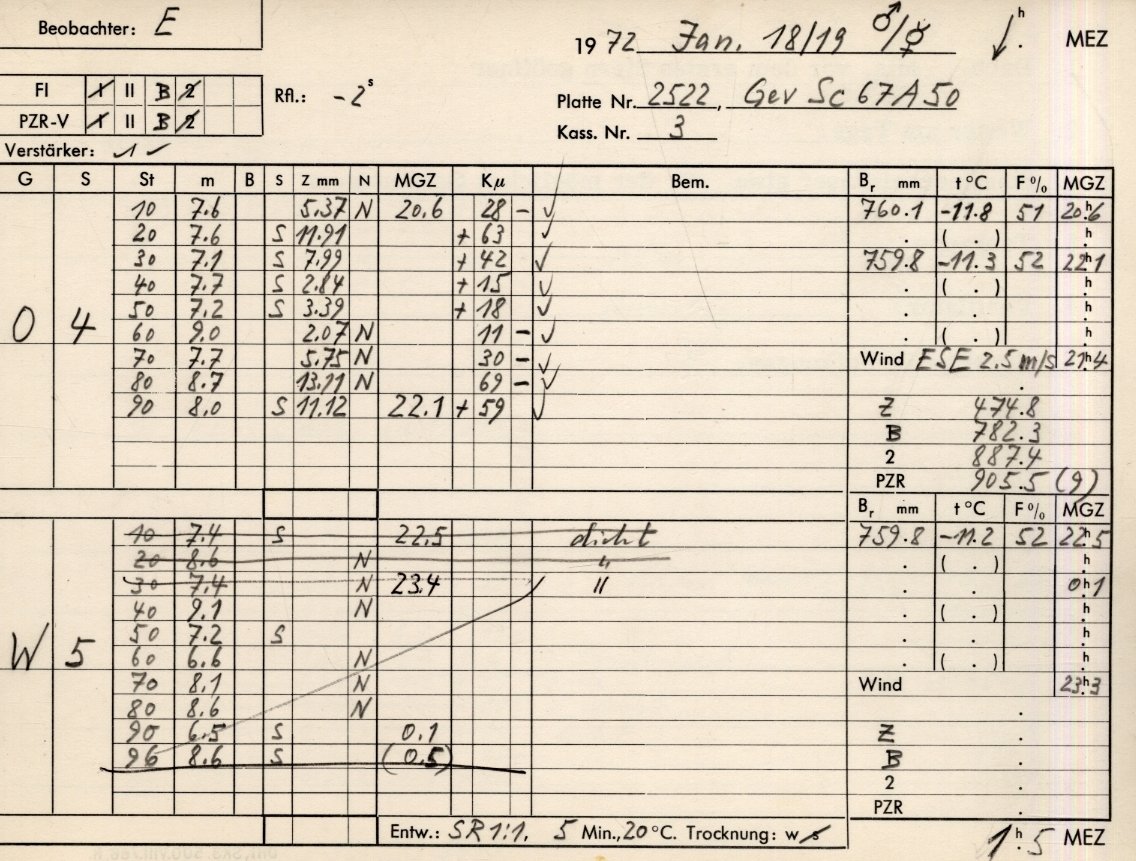 Beobachter: E
1972 Jan. 18/19 ♂/☿ h . MEZ
FI 1 II B 2
PZR-V 1 II B 2
Rfl.: -2 s
Platte Nr. 2522, Gev Sc 67A50
Kass. Nr. 3
Verstärker: 1 ✓
G S St m B S Z mm N MGZ Kμ Bem. Br mm t °C F % MGZ
O 4
10 7.6 5.37 N 20.6 28 - ✓ 760.1 -11.8 51 20h6
20 7.6 S 11.91 + 63 ✓ . ( . ) h.
30 7.1 S 7.99 + 42 ✓ 759.8 -11.3 52 22h1
40 7.7 S 2.84 + 15 ✓ . ( . ) h.
50 7.2 S 3.39 + 18 ✓ . . h.
60 9.0 2.07 N 11 - ✓ . ( . ) h.
70 7.7 5.75 N 30 - ✓ Wind ESE 2.5 m/s 21h4
80 8.7 13.11 N 69 - ✓ .
90 8.0 S 11.12 22.1 + 59 ✓ Z 474.8
B 782.3
2 887.4
PZR 905.5 (9)
Br mm t °C F % MGZ
W 5
10 7.4 S 22.5 dicht 759.8 -11.2 52 22h5
20 8.6 N " . ( . ) h.
30 7.4 N 23.4 " . . 0h1
40 9.1 N . ( . ) h.
50 7.2 S . . h.
60 6.6 N . ( . ) h.
70 8.1 N Wind 23h3
80 8.6 N .
90 6.5 S 0.1 Z .
96 8.6 S (0.5) B .
2 .
PZR .
Entw.: SR 1:1, 5 Min., 20 °C. Trocknung: w s 1h5 MEZ